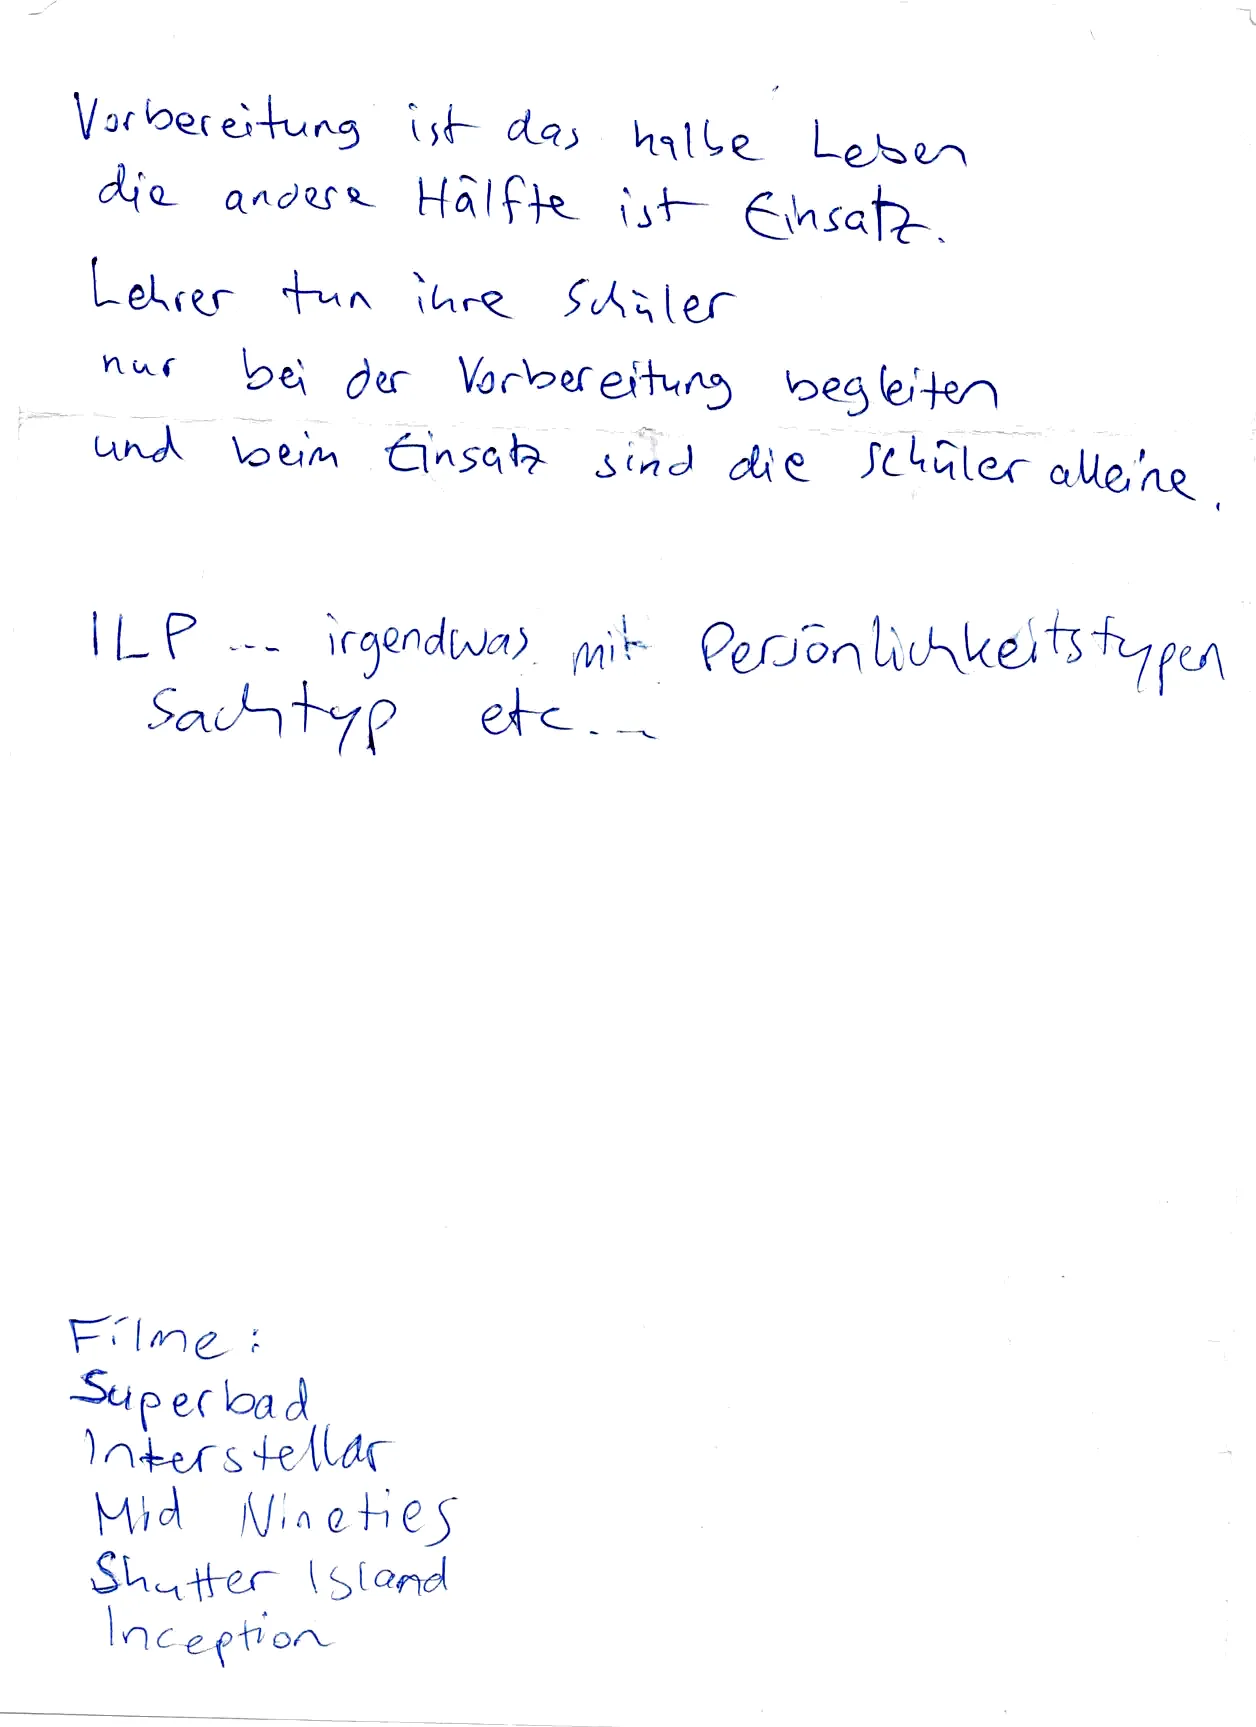 Vorbereitung ist das halbe Leben
die andere Hälfte ist Einsatz.
Lehrer tun ihre Schüler
nur bei der Vorbereitung begleiten
und beim Einsatz sind die Schüler alleine.
ILP --- irgendwas mit Persönlichkeitstypen
Sachtyp etc...
Filme:
Superbad
Interstellar
Mid Nineties
Shutter Island
Inception